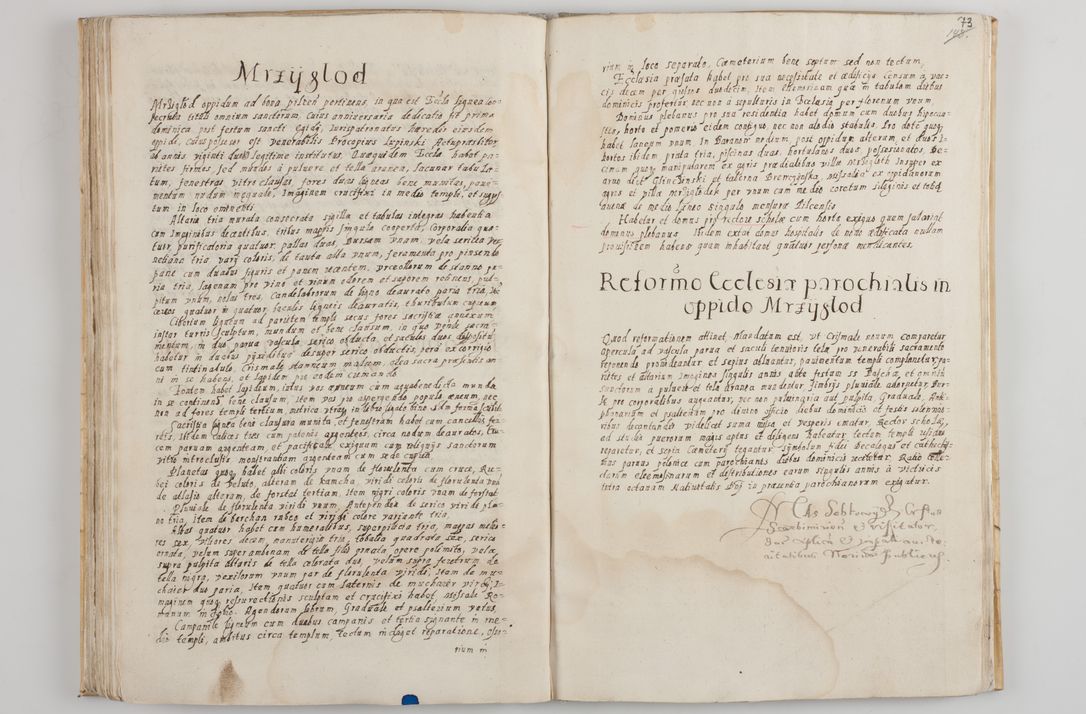 Mrzyglod
Mrziglod oppidum ad bona Pilcen pertinens, in qua est Eccla lignea con=
secrata tituli omnium sanctorum, cuius anniversaria dedicatio fit prima
dominica post festum sancti Egidij, iurispatronatus Haeredis eiusdem
oppidi, cuius possessor est venerabilis Procopius Lipinski
ab annis viginti duobus legitime institutus. Quaequidem Eccla habet pa=
rietes firmos sed mundos à puluere et tella aranea, lacunar tabulu
tum, fenestras vitro clausas fores duas ligneas bene munitas, paui=
mentum nondum inequale, Imaginem crucifixi in medio templi, et
tum in loco eminenti
Altaria tria murata consecrata sigilla et tabulas integras habentia
cum Imaginibus decentibus, tribus mappis singula cooperta, Corporalia qua=
tuor, purificatoria quatuor, pallas duas, Bursam vnam, vela sericea
netiana tria, varij coloris, de tauta alba vnum, feramenta pro pinsendo
pane cum duabus figuris et panem recentem, vrceollorum de stanno pa=
ria tria, lagenam pro vino et vinum odorem et saporem retinens, pul=
pitum vnum, nolas tres, Candelabrorum de ligno deaurato paria tria,
cereos quatuor in quatuor, baculis ligneis deauratis, thuribulum cupreum
Ciborium ligneum ad parietem templi secus fores sacristiae annexum
instar turris sculptum, mundum et bene clausum, in quo pende sacra=
mentum, in duo parua vascula, serico obducta, et saculis duas
habetur in duabus pixidibus desuper serico obductis, pera ex corrigio
cum tintinabulo, Crismale stanneum malum, olea sacra praesentis an=
ni in se habens, et lapidem pro eodem cumendo
Fontem habet lapidum, intus vas aeneum cum aqua benedicta munda
in se continens bene clausum, item vas pro aspergendo populo aeneum, nec
non ad fores templi tertium, metrica vtraq in libro sancto bino sub forma
Sacristia lignea bene clausura munita, et fenestram habet cum cancellis fer=
reis, ibidem calices tres cum patenis argenteos, circa nodum deauratos, Cru=
cem paruam argenteam, et pacificale exiguum cum reliquijs sanctorum
vitro introclusis monstrantiam argenteam cum sede cuprea
Planetas quoq habet albi coloris vnam de florulenta cum cruce, Ru=
bei coloris de veluto, alteram de kamcha, viridi coloris de florulenta vna
de atlasio alteram, de forstat tertiam, item nigri coloris vnam de forstat
Pluuiale de florulenta viridi vnum, Antependia de serico viridi ple=
no tria, item de barchan rubeo et viridi colore variante tria,
Albas quatuor habet cum humeralibus, superpelicia tria, mappas melio
res sex, viliores decem, manutergia tria, tobalea quadrata sex, serico
ornata, velum super ambonam de tella filis creata opere polimito, vela
supra pulpita altaris de tella colorata duo, velum supra feretrum de
tella nigra, vexilorum vnum par de florulenta viridi, item de mu=
chaier duo paria, item quatuor cum laternis de muchaier viridi, I=
maginem quoq resurectionis sculptam et crucifixi habet, missale Ro=
manum in folio. Agendorum librum, Graduale et psalterium vetus.
Campanile ligneum cum duabus campanis et tertia signante in me=
dio templi, ambitus circa templum, tectum indiget reparatione, osso=
rium in
73
rium in loco separato, Caemeterium bene septum sed non tectum,
Ecclesia praefata habet pro sua necessitate et aedificijs censum a vac=
cis decem per grossos duodecim, item elemosinam quae in tabulam diebus
dominicis proferitur nec non a sepulturis in Ecclesia per florenum vnum.
Dominus plebanus pro sua residentia habet domum cum duobus hipocau=
stis, horto et pomerio eidem contiguo, nec non alodio stabulis. Pro dote quoq
habet laneum vnum in Baranow medium, post oppidum alterum et duos
hortos ibidem prata tria, piscinas duas, hortulanos duos possesionatos De=
cimam quoq manipularem ex agris praedialibus villae Mrziglodh Insuper ex
aruo dict Glinchinski et taberna Brencziinska, missalia ex oppidanorum
agris et villa mrziglodek per vnum cum medio coretum siliginis et totid
auena de medio laneo singulo mensura Pilcensis
Habetur et domus pro rectore scholae cum horto exiguo quem salariat
dominus plebanus Ibidem extat domus hospitalis de nouo aedificata nullam
prouisionem habens quam inhabitant quatuor personae mendicantes.
Reformo Ecclesiæ parochialis in
oppido Mrzyglod
Quod reformationem attinet, Mandatum est, vt Crismale nouum comparetur
opercula ad vascula parua et saculi tenuioris tela pro venerabili sacramento
reponendo prouideantur et sepius abluantur, pauimentum templi complanetur, pa=
rietes et altarium Imagines singulis annis ante festum ss Paschae, et omniu
sanctorum a puluere et tela aranea mundentur Fimbris pluuiale adornetur, Bur=
sae pro corporalibus augeantur, nec non puluinaria aut pulpita, Graduale, Anti=
phonarium et psalterium pro diuino officio diebus dominicis et festis solemnio=
ribus decantandis videlicet summa missa et vesperis ematur. Rector scholae,
ad studia puerorum magis aptus et diligens habeatur tectum templi vbilibet
reparetur, et septa Caemeterij tegantur symbolum fidei Decalogus et cathechis
mus paruus polonice cum parochianis diebus dominicis recitetur. Ratio colle=
ctarum eleemosinarum et distributiones earum singulis annis à vicecuis
infra octauam Natiuitatis Dnj in praesentia parochianorum exigatur.